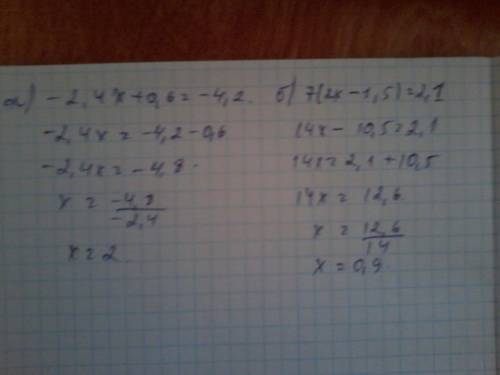 а) -2,4x+0,6=-4,2.
-2,4x=-4,2-0,6
-2,4x=-4,8.
x = -4,8/-2,4
x=2
б) 7(2x-1,5)=2,1
14x-10,5=2,1
14x=2,1+10,5
14x=12,6.
x = 12,6/14
x=0,9